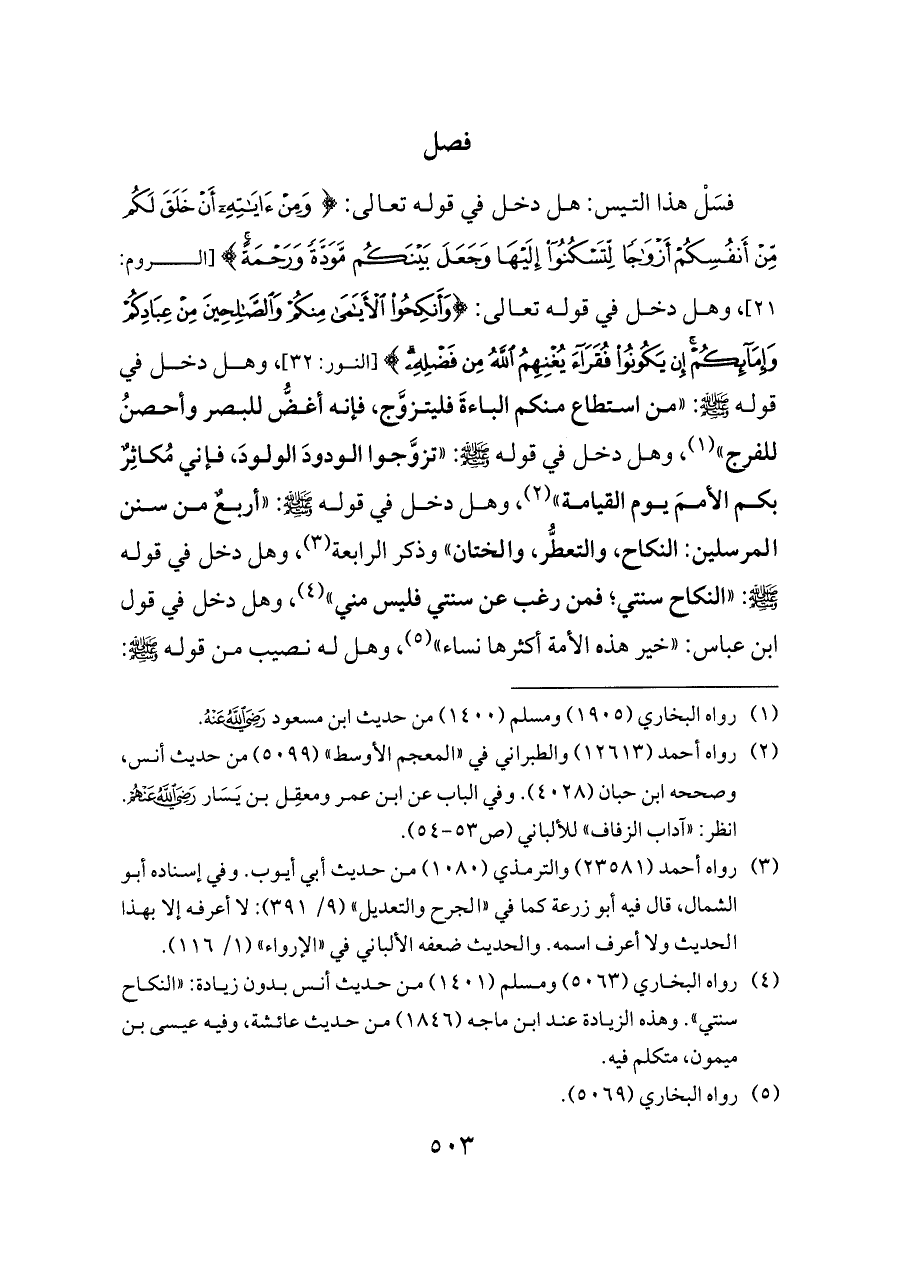 فصل
فسَلْ هذا التيس: هل دخل في قوله تعالى: ﴿ وَمِنْ ءَايَٰتِهِۦٓ أَنْ خَلَقَ لَكُم
مِّنْ أَنفُسِكُمْ أَزْوَٰجًا لِّتَسْكُنُوٓا۟ إِلَيْهَا وَجَعَلَ بَيْنَكُم مَّوَدَّةً وَرَحْمَةً ۚ ﴾ [الروم:
٢١]، وهل دخل في قوله تعالى: ﴿وَأَنكِحُوا۟ ٱلْأَيَٰمَىٰ مِنكُمْ وَٱلصَّٰلِحِينَ مِنْ عِبَادِكُمْ
وَإِمَآئِكُمْ ۚ إِن يَكُونُوا۟ فُقَرَآءَ يُغْنِهِمُ ٱللَّهُ مِن فَضْلِهِۦ ۗ ﴾ [النور: ٣٢]، وهل دخل في
قوله ﷺ: «من استطاع منكم الباءةَ فليتزوَّج، فإنه أغضُّ للبصر وأحصنُ
للفرج»(١)، وهل دخل في قوله ﷺ: «تزوَّجوا الودودَ الولودَ، فإني مُكاثِرٌ
بكم الأممَ يوم القيامة»(٢)، وهل دخل في قوله ﷺ: «أربعٌ من سنن
المرسلين: النكاح، والتعطُّر، والختان» وذكر الرابعة(٣)، وهل دخل في قوله
ﷺ: «النكاح سنتي؛ فمن رغب عن سنتي فليس مني»(٤)، وهل دخل في قول
ابن عباس: «خير هذه الأمة أكثرها نساء»(٥)، وهل له نصيب من قوله ﷺ:
(١) رواه البخاري (١٩٠٥) ومسلم (١٤٠٠) من حديث ابن مسعود رَضِيَ اللَّهُ عَنْهُ.
(٢) رواه أحمد (١٢٦١٣) والطبراني في «المعجم الأوسط» (٥٠٩٩) من حديث أنس،
وصححه ابن حبان (٤٠٢٨). وفي الباب عن ابن عمر ومعقِل بن يَسَار رَضِيَ اللَّهُ عَنْهُمْ.
انظر: «آداب الزفاف» للألباني (ص٥٣-٥٤).
(٣) رواه أحمد (٢٣٥٨١) والترمذي (١٠٨٠) من حديث أبي أيوب. وفي إسناده أبو
الشمال، قال فيه أبو زرعة كما في «الجرح والتعديل» (٩/ ٣٩١): لا أعرفه إلا بهذا
الحديث ولا أعرف اسمه. والحديث ضعفه الألباني في «الإرواء» (١/ ١١٦).
(٤) رواه البخاري (٥٠٦٣) ومسلم (١٤٠١) من حديث أنس بدون زيادة: «النكاح
سنتي». وهذه الزيادة عند ابن ماجه (١٨٤٦) من حديث عائشة، وفيه عيسى بن
ميمون، متكلم فيه.
(٥) رواه البخاري (٥٠٦٩).
٥٠٣